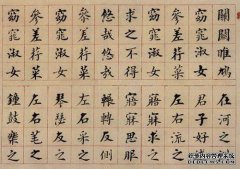 關關雎鳩在河之洲
窈窕淑女君子好逑
參差荇菜左右流之
窈窕淑女寤寐求之
求之不得寤寐思服
悠哉悠哉輾轉反側
參差荇菜左右采之
窈窕淑女琴瑟友之
參差荇菜左右芼之
窈窕淑女鍾鼓樂之